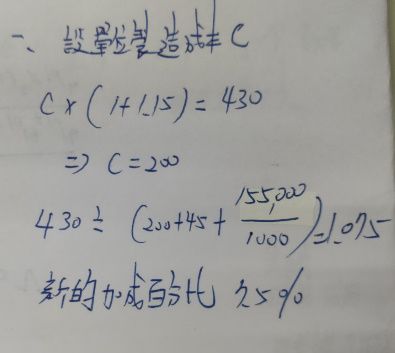 一、設單位製造成本 C
C × (1+1.15) = 430
⇒ C = 200
430 ÷ (200+45+ 155,000/1000) = 1.075
新的加成百分比 7.5%